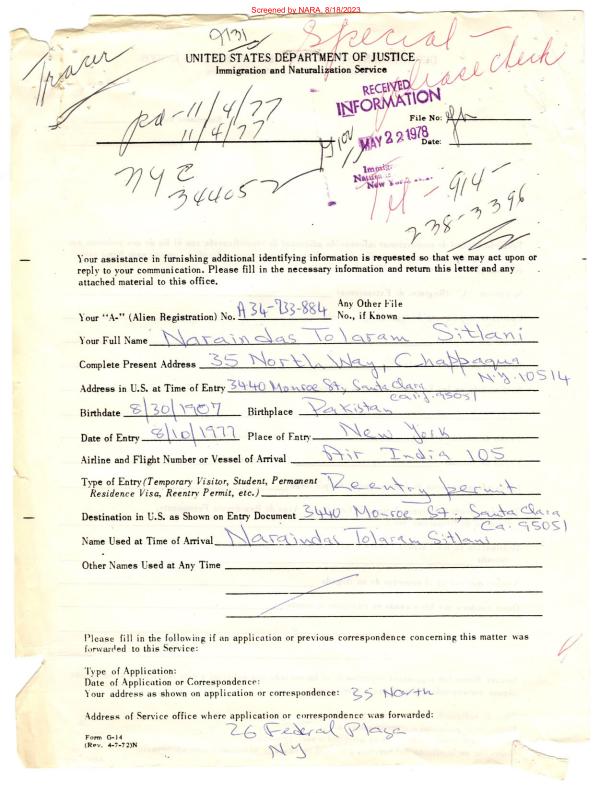 Screened by NARA, 8/18/2023
9131
Special -
Please check
Tracer
UNITED STATES DEPARTMENT OF JUSTICE
Immigration and Naturalization Service
RECEIVED
INFORMATION
MAY 22 1978
New York
File No:
Date:
pd - 11/4/77
11/4/77
NYC
34405
Tel - 914 -
238-3396
Your assistance in furnishing additional identifying information is requested so that we may act upon or
reply to your communication. Please fill in the necessary information and return this letter and any
attached material to this office.
Your "A-" (Alien Registration) No. A34-733-884 Any Other File No., if Known
Your Full Name Naraindas Tolaram Sitlani
Complete Present Address 35 North Way, Chappaqua
N.Y. 10514
Address in U.S. at Time of Entry 3440 Monroe St., Santa Clara
Calif. 95051
Birthdate 8/30/1907 Birthplace Pakistan
Date of Entry 8/10/1977 Place of Entry New York
Airline and Flight Number or Vessel of Arrival Air India 105
Type of Entry (Temporary Visitor, Student, Permanent
Residence Visa, Reentry Permit, etc.) Reentry permit
Destination in U.S. as Shown on Entry Document 3440 Monroe St., Santa Clara
Ca. 95051
Name Used at Time of Arrival Naraindas Tolaram Sitlani
Other Names Used at Any Time
Please fill in the following if an application or previous correspondence concerning this matter was
forwarded to this Service:
Type of Application:
Date of Application or Correspondence:
Your address as shown on application or correspondence: 35 North
Address of Service office where application or correspondence was forwarded:
26 Federal Plaza
NY
Form G-14
(Rev. 4-7-72)N